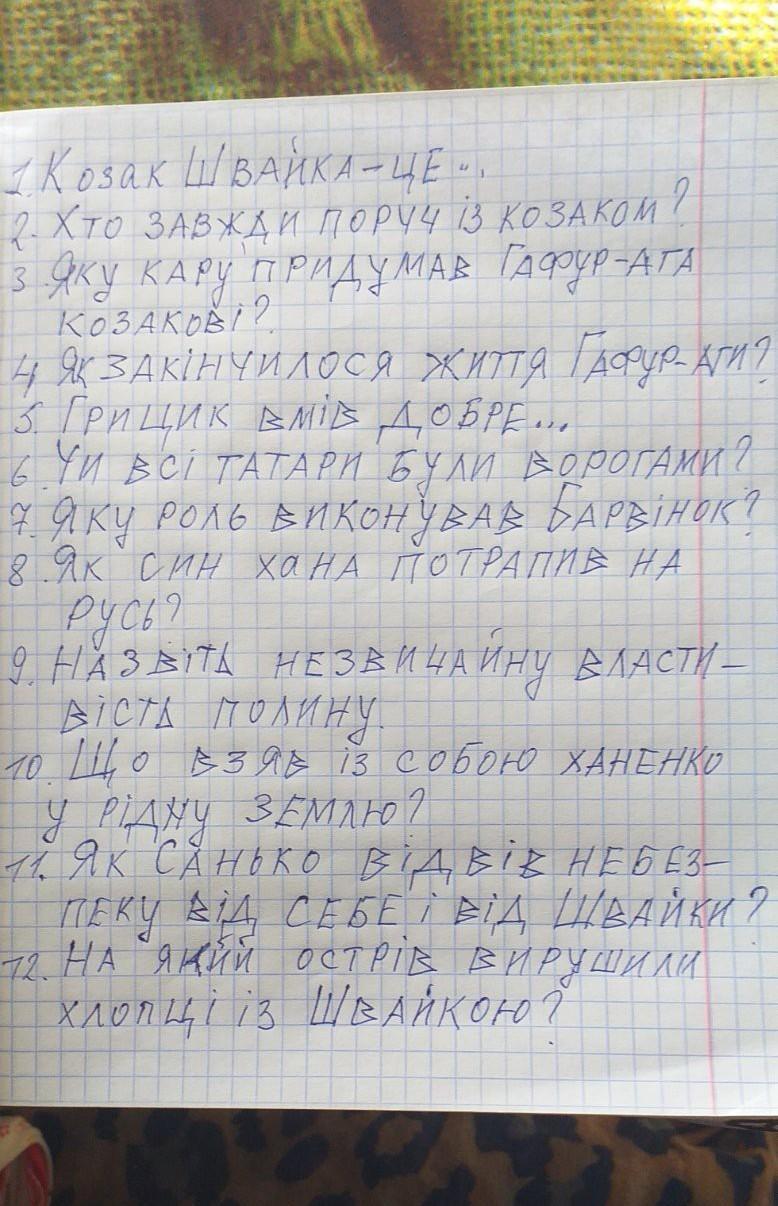 1. Козак Швайка – це ...
2. Хто завжди поруч із козаком?
3. Яку кару придумав Гафур-ага
козакові?
4. Як закінчилося життя Гафур-аги?
5. Грицик вмів добре...
6. Чи всі татари були ворогами?
7. Яку роль виконував Барвінок?
8. Як син хана потрапив на
Русь?
9. Назвіть незвичайну власти-
вість полину.
10. Що взяв із собою ханенко
у рідну землю?
11. Як Санько відвів небез-
пеку від себе і від Швайки?
12. На який острів вирушили
хлопці із Швайкою?